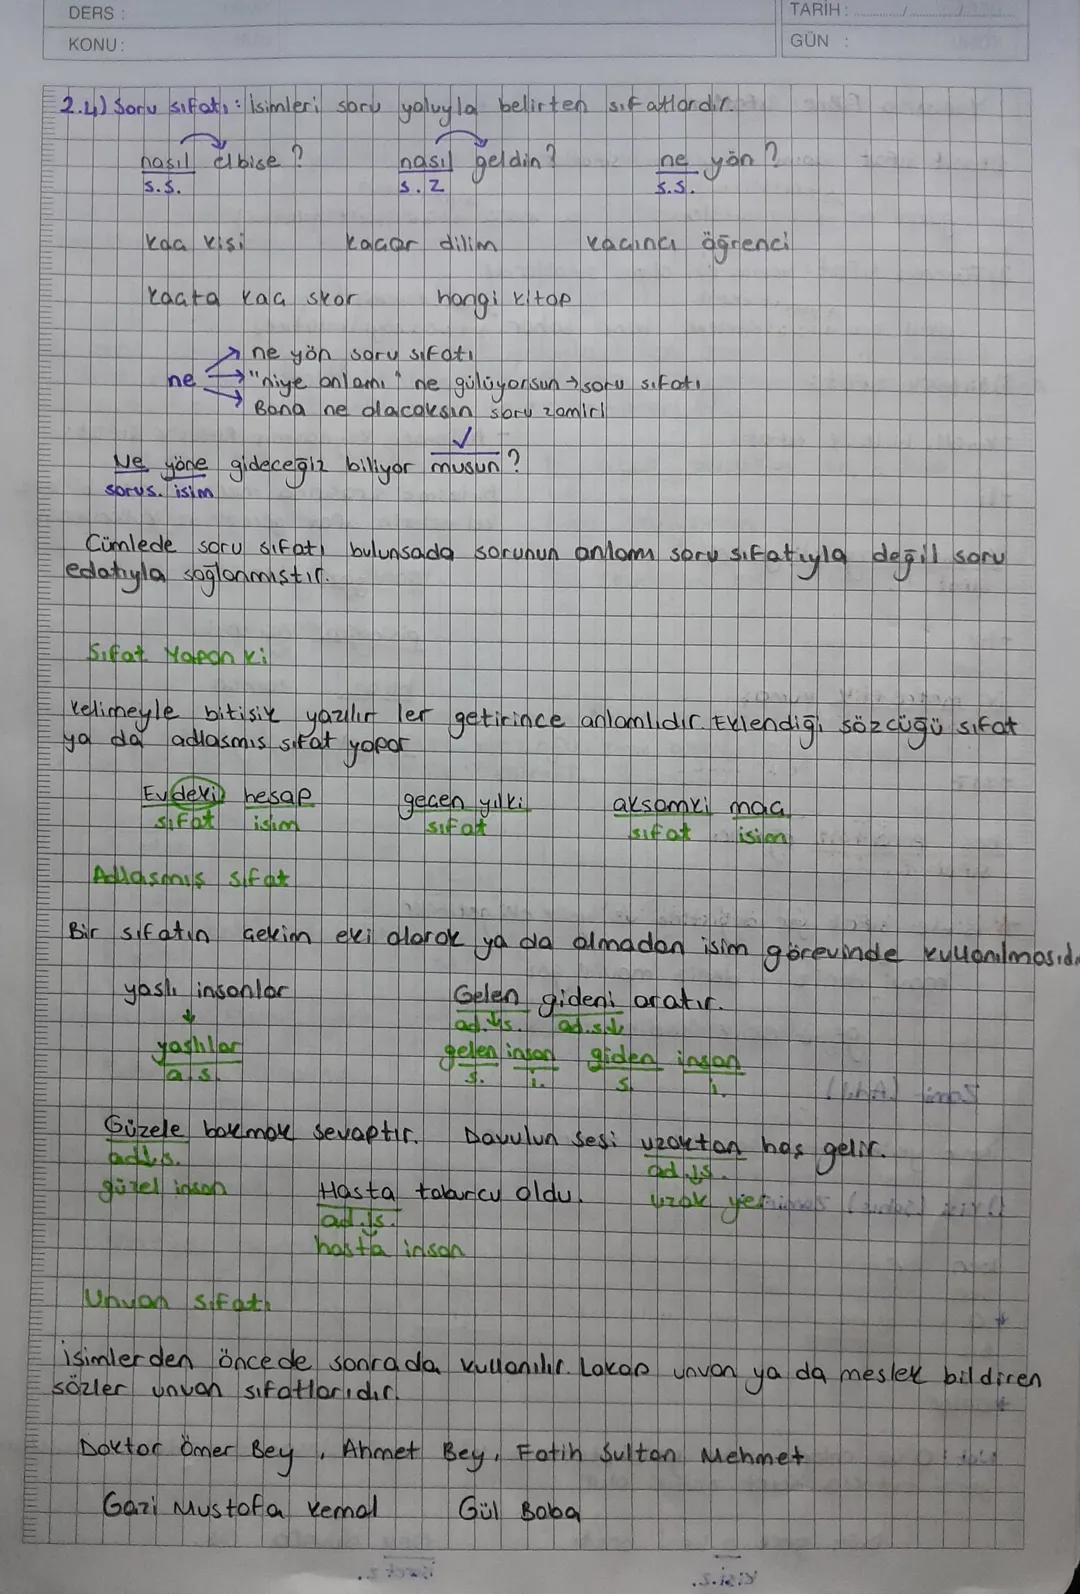 DERS :
TARİH : ............/............/............
KONU :
GÜN :
2.4) Soru sıfatı : İsimleri soru yoluyla belirten sıfatlardır.
nasıl elbise ? nasıl geldin ? ne yön ?
s.s. s.z s.s.
kaç kişi kaçar dilim kaçıncı öğrenci
kaçta kaç skor hangi kitap
ne yön soru sıfatı
ne "niye anlamı" ne gülüyorsun → soru sıfatı
Bana ne alacaksın soru zamiri
Ne yöne gideceğiz biliyor musun ?
soru s. isim
Cümlede soru sıfatı bulunsada sorunun anlamı soru sıfatıyla değil soru
edatıyla sağlanmıştır.
Sıfat Yapan ki
Kelimeyle bitişik yazılır ler getirince anlamlıdır. Eklendiği sözcüğü sıfat
ya da adlaşmış sıfat yapar
Evdeki hesap geçen yılki akşamki maç
sıfat isim sıfat sıfat isim
Adlaşmış sıfat
Bir sıfatın çekim eki alarak ya da almadan isim görevinde kullanılmasıdı
yaşlı insanlar Gelen gideni aratır.
ad.ls. ad.s.
yaşlılar gelen insan giden insan
a.s. s. i. s. i.
Güzele bakmak sevaptır. Davulun sesi uzaktan hoş gelir.
adls. ad.ls.
güzel insan Hasta taburcu oldu. uzak yer
ad.ls.
hasta insan
Unvan sıfatı
İsimlerden öncede sonrada kullanılır. Lakap unvan ya da meslek bildiren
sözler unvan sıfatlarıdır.
Doktor Ömer Bey , Ahmet Bey, Fatih Sultan Mehmet
Gazi Mustafa Kemal Gül Baba